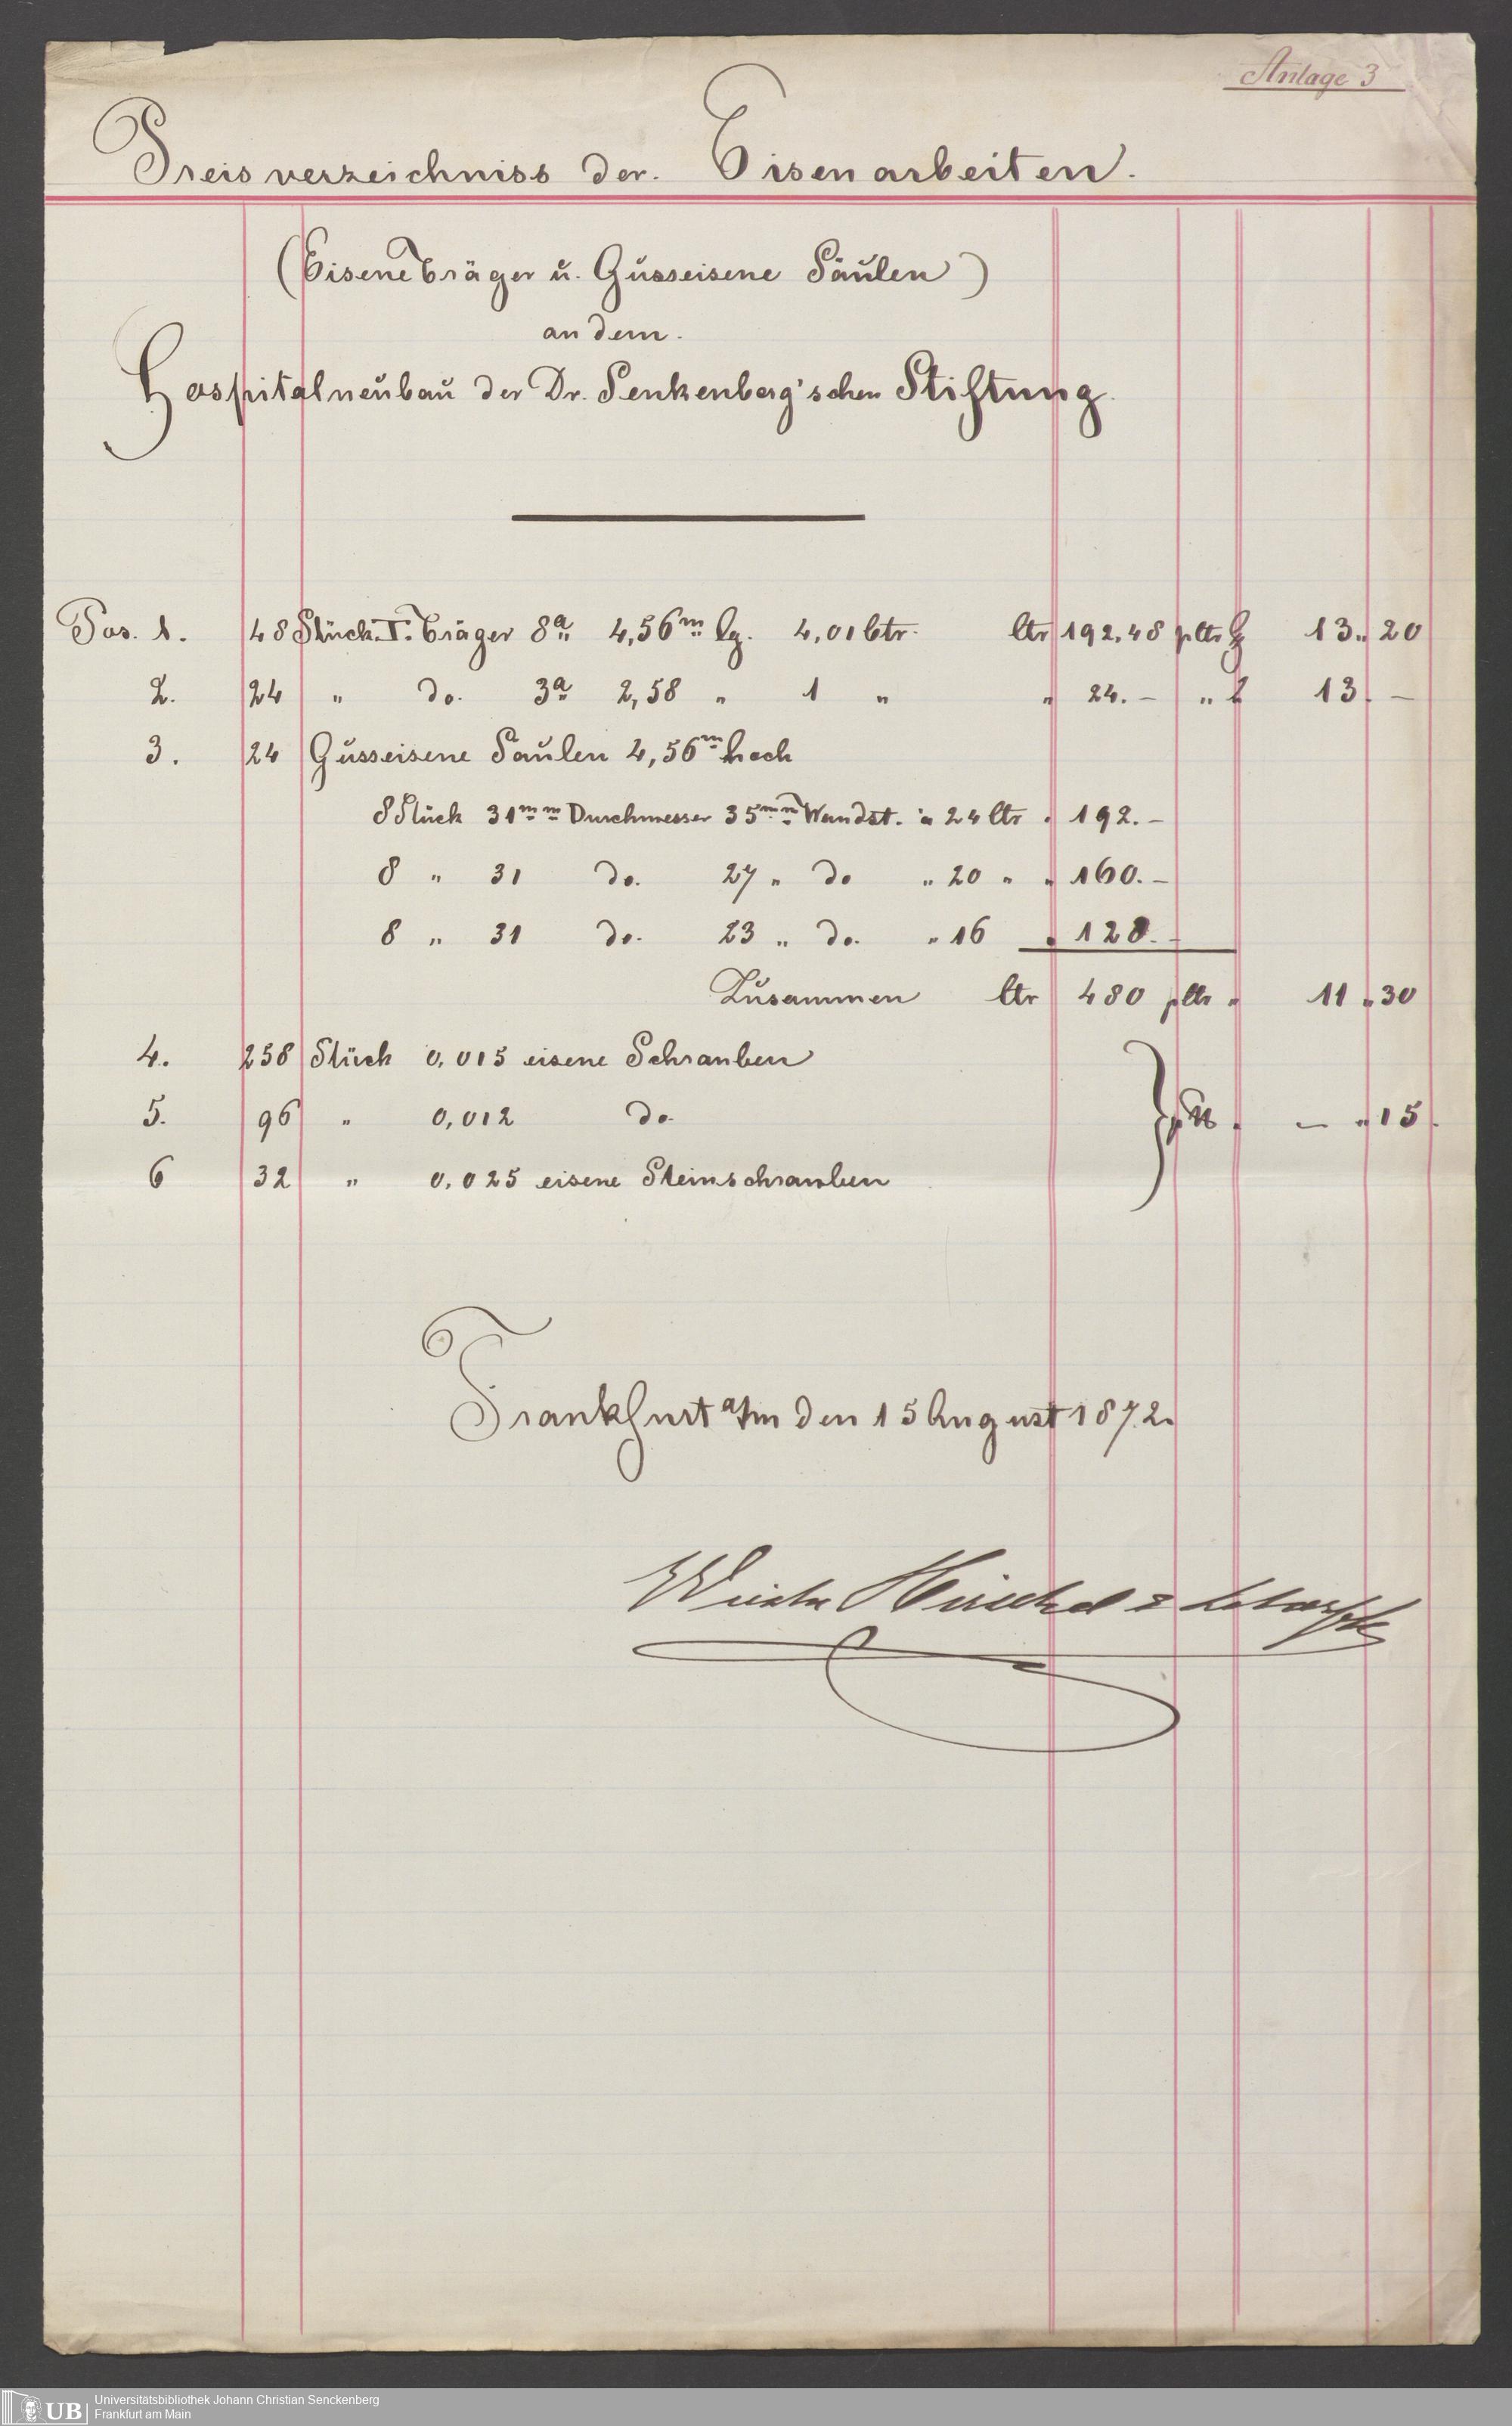 Anlage 3
Preisverzeichniss der. Eisenarbeiten.
(Eisene Träger u. Gusseisene Säulen)
an dem.
Hospitalneubau der Dr. Senkenberg'schen Stiftung.
Pos. 1. 48 Stück I. Träger 8a 4,56m lg. 4,01 Ctr. Ctr 192.48 p Ctr fl 13 " 20
2. 24 " do. 3a 2,58 " 1 " " 24. – " " fl 13. –
3. 24 Gusseisene Saulen 4,56m hoch
8 Stück 31mm Durchmesser 35mm Wandst. a 24 Ctr " 192. –
8 " 31 do. 27 " do " 20 " " 160. –
8 " 31 do. 23 " do. " 16 " 128. –
Zusammen Ctr 480 p Ctr " 11 " 30
4. 258 Stück 0,015 eisene Schrauben
5. 96 " 0,012 do. p ℔ " – " 15
6 32 " 0,025 eisene Steinschrauben
Frankfurt a/m den 15 August 1872.
UB
Universitätsbibliothek Johann Christian Senckenberg
Frankfurt am Main